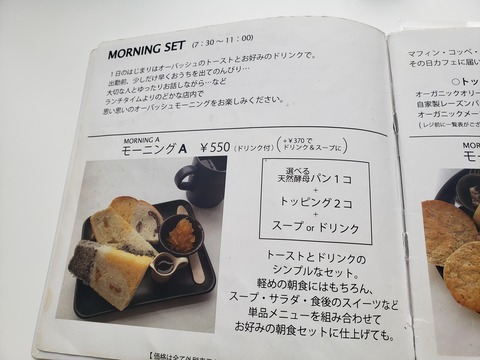 MORNING SET (7:30～11:00)
1日のはじまりはオーバッシュのトーストとお好みのドリンクで。
出勤前、少しだけ早くおうちを出てのんびり…
大切な人とゆったりお話しながら…など
ランチタイムよりのどかな店内で
思い思いのオーバッシュモーニングをお楽しみください。
MORNING A
モーニングA ￥550 (ドリンク付) (+￥370で
ドリンク&スープに)
選べる
天然酵母パン1コ
+
トッピング2コ
+
スープ or ドリンク
トーストとドリンクの
シンプルなセット。
軽めの朝食にはもちろん、
スープ・サラダ・食後のスイーツなど
単品メニューを組み合わせて
お好みの朝食セットに仕上げても。
マフィン・コッペ・
その日カフェに届い
○トッ
オーガニックオリー
自家製レーズンバ
オーガニックメー
(レジ前に一覧表がござ
MOR
モー